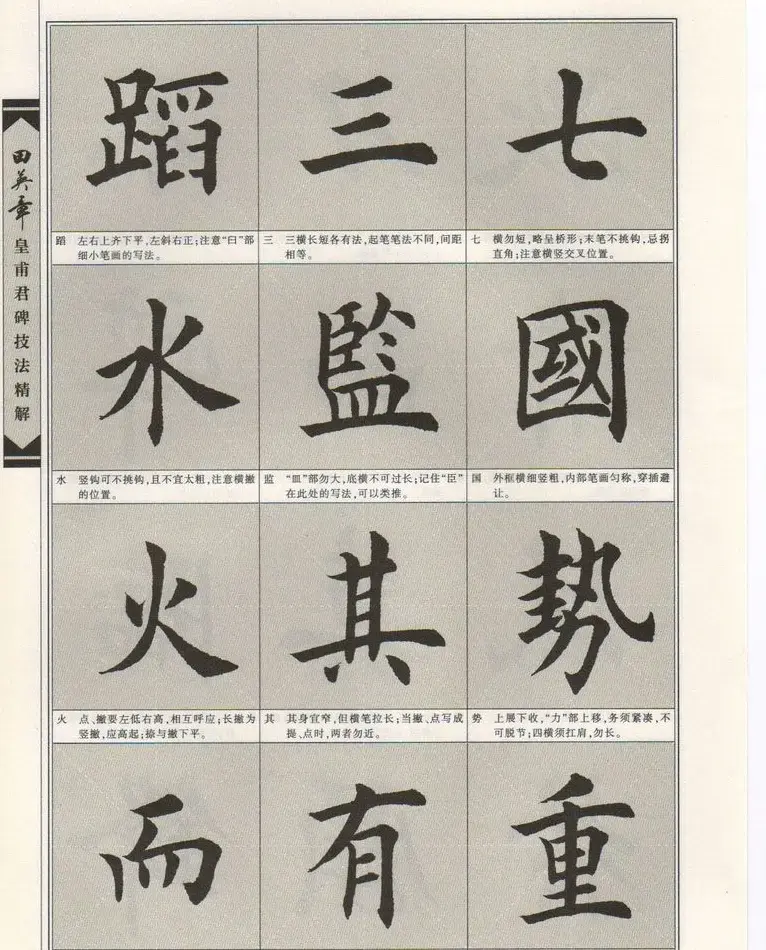 田英章皇甫君碑技法精解
蹈 三 七
蹈 左右上齐下平,左斜右正;注意“曰”部
细小笔画的写法。
三 三横长短各有法,起笔笔法不同,间距
相等。
七 横勿短,略呈桥形;末笔不挑钩,忌拐
直角;注意横竖交叉位置。
水 監 國
水 竖钩可不挑钩,且不宜太粗,注意横撇
的位置。
监 “皿”部勿大,底横不可过长;记住“臣”
在此处的写法,可以类推。
国 外框横细竖粗,内部笔画匀称,穿插避
让。
火 其 势
火 点、撇要左低右高,相互呼应;长撇为
竖撇,应高起;捺与撇下平。
其 其身宜窄,但横笔拉长;当撇、点写成
提、点时,两者勿近。
势 上展下收,“力”部上移,务须紧凑,不
可脱节;四横须扛肩,勿长。
而 有 重